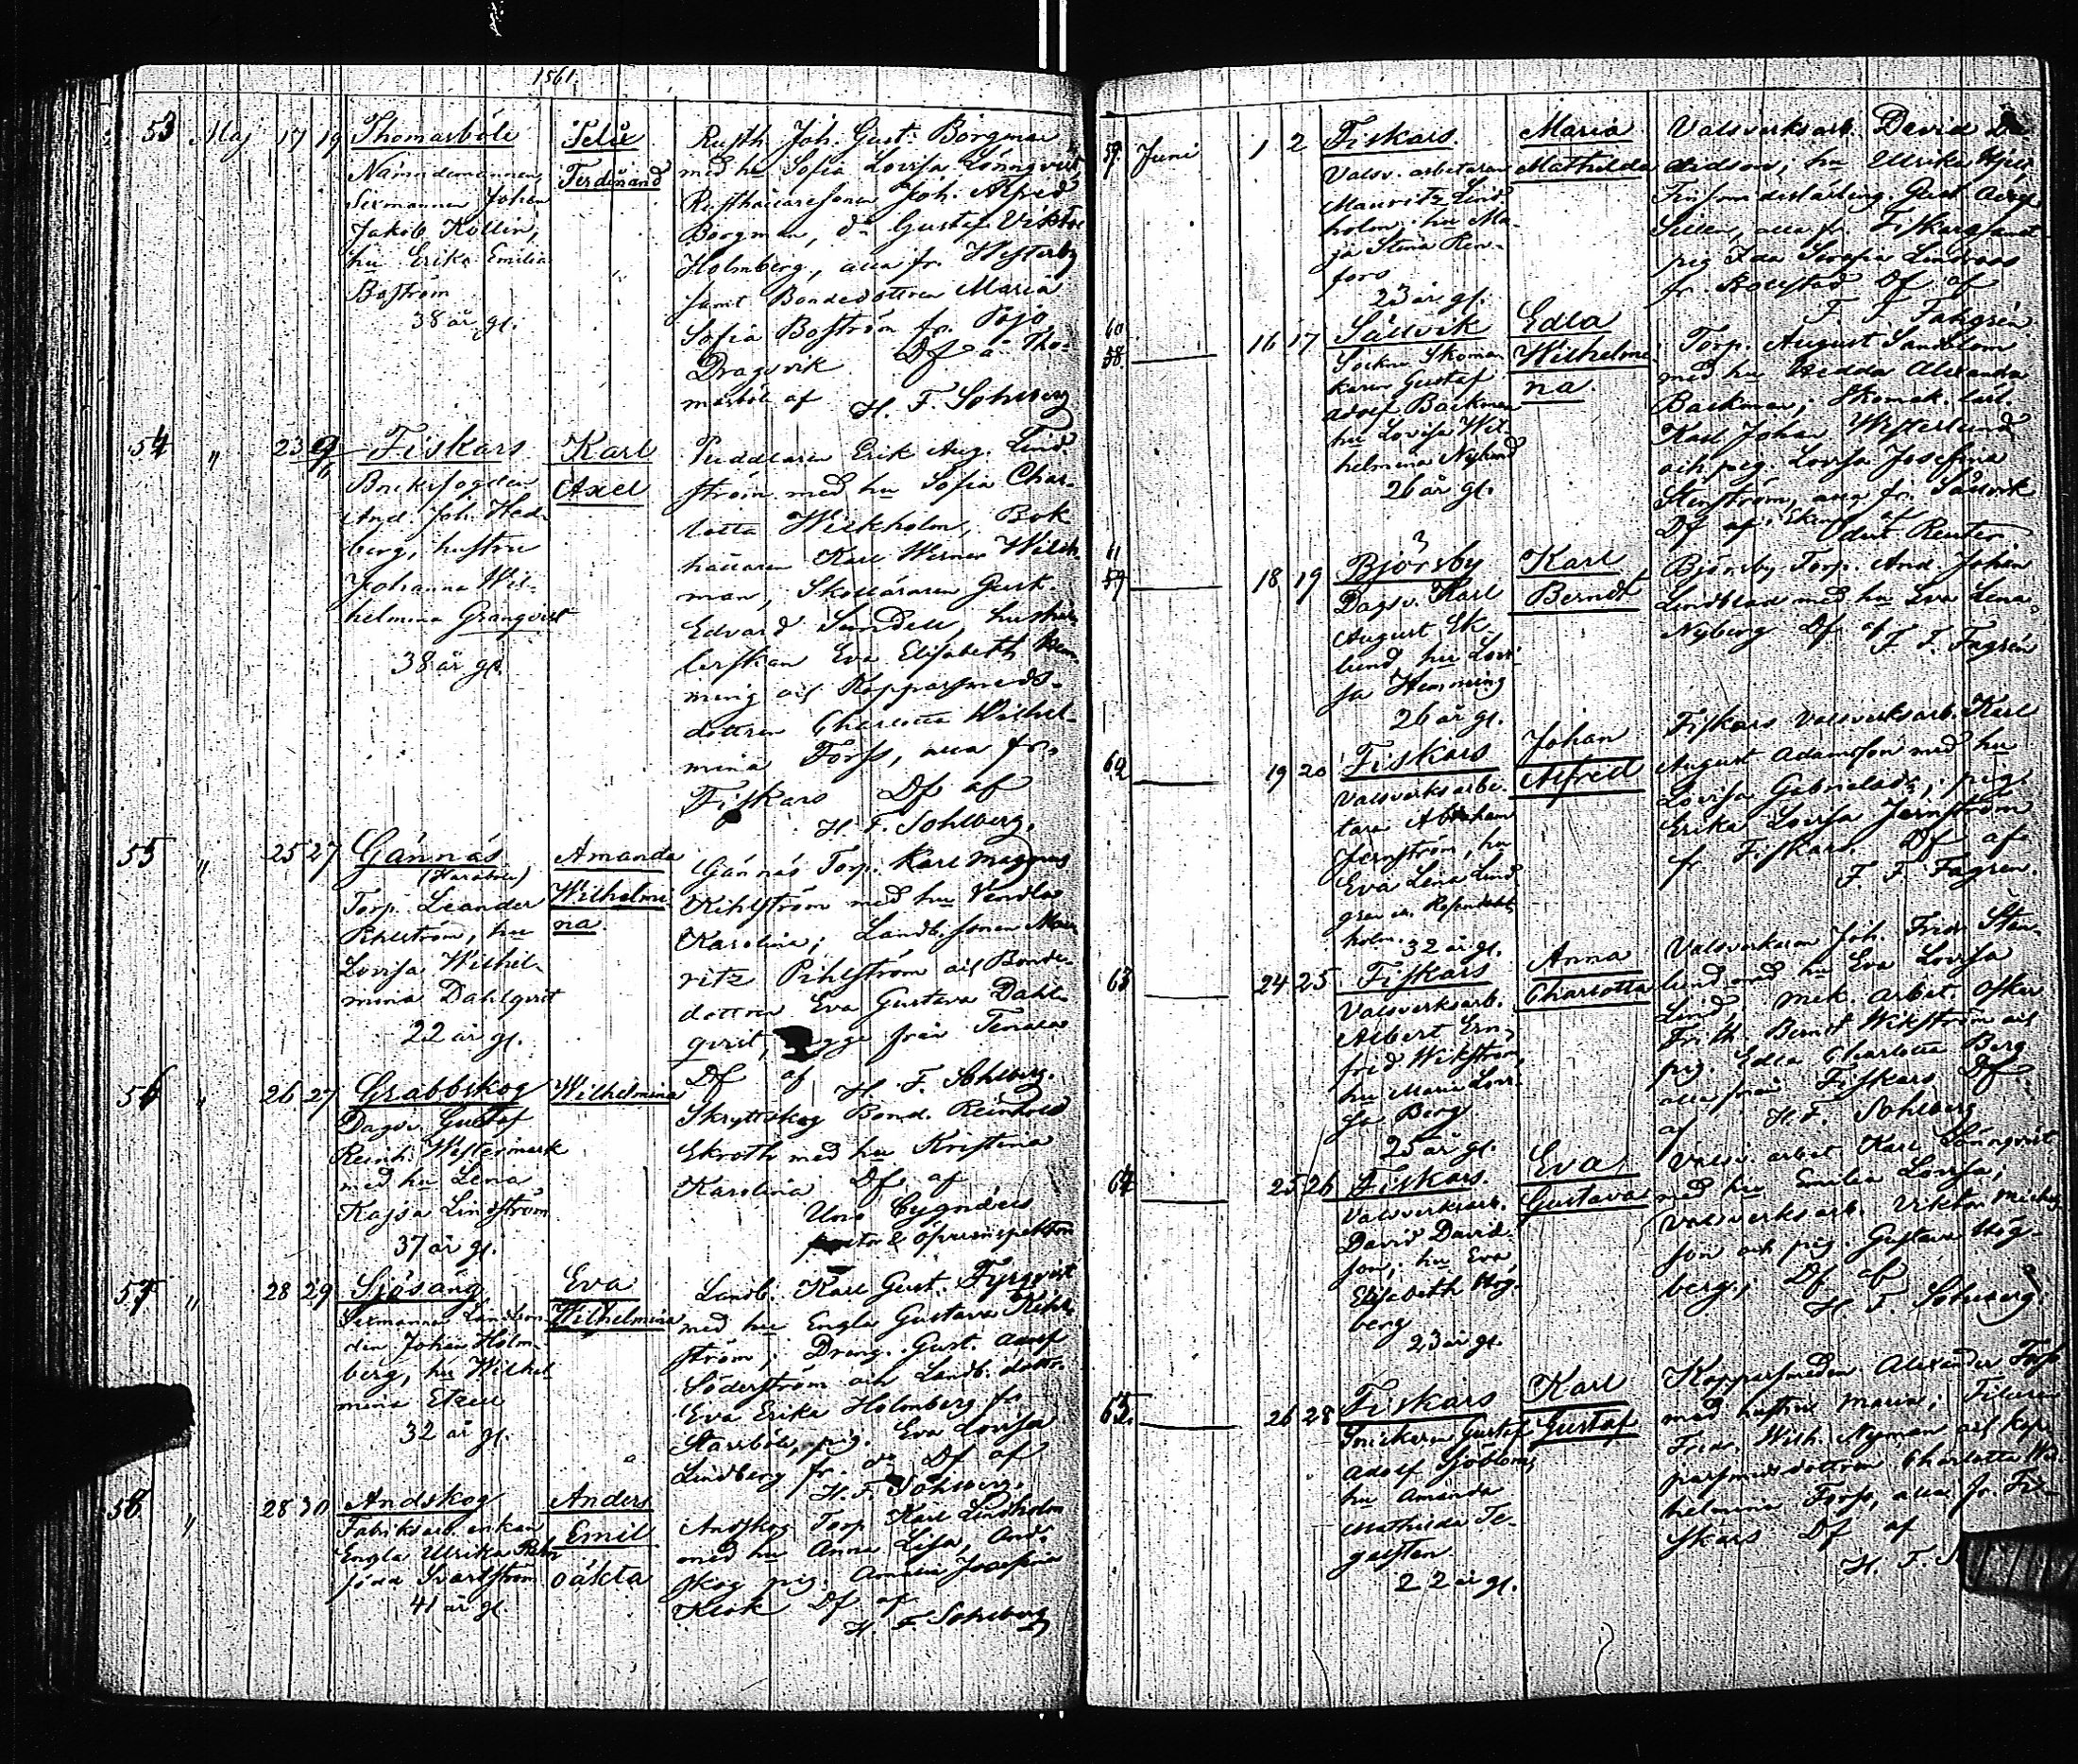 1861.
53 Maj 17 19 Thomasböle
Nämndemannen,
Sexmannen Johan
Jakob Kollin,
hu Erika Emilia
Boström
38 år gl.
Felix
Ferdinand
Rusth. Joh. Gust. Borgman
med hu Sofia Lovisa Lönnqvist,
Rusthållaresonen Joh. Alfred
Borgman, do Gustaf Viktor
Holmberg, alla fr. Westerby
samt Bondedottren Maria
Sofia Boström fr. Pojo
Dragsvik Df å Tho-
masböle af
H. F. Sohlberg
54 " 23 Fiskars
Bruksfogden
And. Joh. Hed-
berg, hustru
Johanna Wil-
helmina Granqvist
38 år gl.
Karl
Axel
Puddlaren Erik Aug. Lind-
ström med hu Sofia Char-
lotta Wickholm, Bok-
hållaren Karl Werner
man, Skolläraren Gust.
Edvard Sundell, hushål-
lerskan Eva Elisabeth Hem-
ming och Kopparsmeds-
dottren Charlotta Wilhel-
mina Forss, alla fr.
Fiskars Df af
H. F. Sohlberg.
55 " 25 27 Gännäs
Torp. Leander
Pihlström, hu
Lovisa Wilhel-
mina Dahlqvist
22 år gl.
Amanda
Wilhelmi-
na.
Gännäs Torp. Karl Magnus
Pihlström med hu Vendla
Karolina; Landb. sonen Mau-
ritz Pihlström och Bonde-
dottren Eva Gustava Dahl-
qvist, begge från Tenala
Df af H. F. Sohlberg.
56 " 26 27 Grabbskog
Dagsv. Gustaf
Reinh. Westermark
med hu Lena
Kajsa Lindström
37 år gl.
Wilhelmina
Skryttskog Bond. Reinhold
Ekroth med hu Kristina
Karolina Df af
Uno Cygnæus
pastor & öfverinspektor
57 " 28 29 Sjösäng
Sexmannen Landbon-
den Johan Holm-
berg, hu Wilhel-
mina Ekell
32 år gl.
Eva
Wilhelmina
Landb. Karl Gust. Fyrqvist
med hu Engla Gustava Kihl-
ström; Dreng. Gust. Adolf
Söderström och Landb. dottr.
Eva Erika Holmberg fr.
Starrböle, pig. Eva Lovisa
Lindberg fr. do Df af
H. F. Sohlberg.
58 " 28 30 Andskog
Fabriksarb. enkan
Engla Ulrika
född Svartström
41 år gl.
Anders
Emil
oäkta
Andskog Torp. Karl Lindholm
med hu Anna Lisa, And-
skog pig. Amalia Josefina
Klok Df af
H. F. Sohlberg
59. Juni 1 2 Fiskars.
Valsv. arbetaren
Mauritz Lind-
holm, hu Ma-
ja Stina Ren-
fors
23 år gl.
Maria
Mathilda
Valsverksarb. David Da-
vidson, hu Ulrika
Finsmideslärling. Gust. Adolf
alla fr. Fiskars samt
pig. Ida Serafia Lindroos
fr. Df af
F. F. Fagrén
60 58. 16 17 Sällvik
Sockne Skoma-
karen Gustaf
Adolf Backman
hu Lovisa Wil-
helmina Nylund
26 år gl.
Edla
Wilhelmi-
na
Torp. August Sandblom
med hu Hedda Alexandra
Backman; Skomak. lärl.
Karl Johan Westerlund
och pig. Lovisa Josefina
Stenström, alla fr. Sällvik
Df af
Reuter
59 18 19 Björsby
Dagsv. Karl
August Ek-
lund, hu Lovi-
sa Hemming
26 år gl.
Karl
Berndt
Björsby Torp. And. Johan
Lindblad med hu Eva Lena
Nyberg Df af
F. F. Fagrén
62 19 20 Fiskars
Valsverksarbe-
taren Abraham
Jernström, hu
Eva Lena Lind-
gren
holm. 32 år gl.
Johan
Alfred
Fiskars Valsverksarb. Karl
August Adamsson med hu
Lovisa Gabrielsdr; pig.
Erika Lovisa Jernström
fr. Fiskars. Df af
F. F. Fagren.
63 24 25 Fiskars
Valsverksarb.
Albert Ern-
frid Wikström,
hu Maria Lovi-
sa Berg
25 år gl.
Anna
Charlotta
Valsverkaren Joh. Fredr. Stån-
lund med hu Eva Lovisa
Lind, mek. arbet. Oskar
Frith. Berndt Wikström och
pig. Edla Charlotta Berg
alla från Fiskars Df
af H. F. Sohlberg
64 25 26 Fiskars.
Valsverksarb.
David David-
son, hu Eva
Elisabeth Hög-
berg
23 år gl.
Eva
Gustava
Valsv. arbet. Karl Lönnqvist
med hu Emilia Lovisa;
Valsverksarb. Viktor Michel-
son och pig. Gustava Hög-
berg; Df af
H. F. Sohlberg.
65. 26 28 Fiskars
Snickaren Gustaf
Adolf Sjöblom,
hu Amanda
Mathilda Te-
gelsten
22 år gl.
Karl
Gustaf
Kopparsmeden Alexander Forss
med hustru Maria; Filaren
Fredr. Wilh. Nyman och kop-
parsmedsdottren Charlotta Wil-
helmina Forss, alla fr. Fi-
skars Df af
H. F.